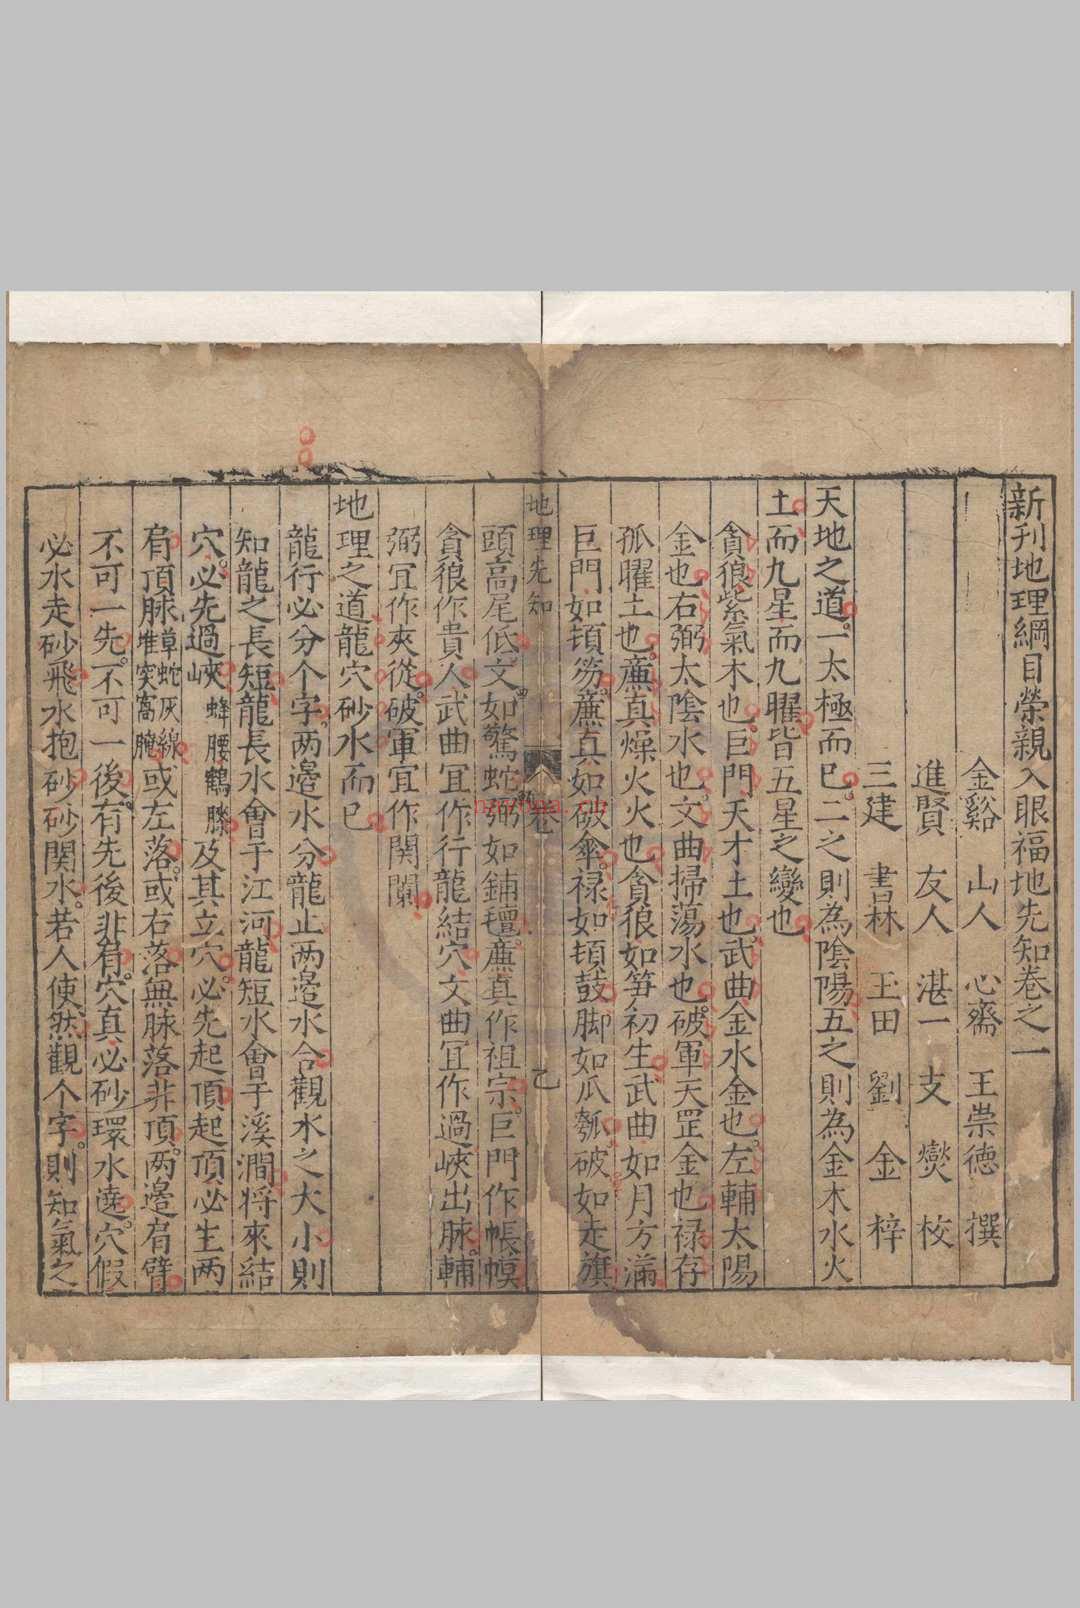 新刋地理綱目榮親入眼福地先知卷之一
金谿 山人 心齋 王崇德 撰
進賢 友人 湛一 支 爕 校
三建 書林 玉田 劉 金 梓
天地之道一太極而已二之則為陰陽五之則為金木水火
土而九星而九曜皆五星之變也
貪狼紫氣木也巨門天才土也武曲金水金也左輔太陽
金也右弼太陰水也文曲掃蕩水也破軍天罡金也禄存
孤曜土也廉真燥火火也貪狼如笋初生武曲如月方滿
巨門如頓笏廉真如破傘禄如頓鼓脚如瓜瓠破如走旗
地理先知 卷 乙
頭高尾低文如驚蛇弼如鋪氊廉真作祖宗巨門作帳幙
貪狼作貴人武曲冝作行龍結穴文曲冝作過峽出脉輔
弼冝作夾從破軍冝作関闌
地理之道龍穴砂水而已
龍行必分个字两邉水分龍止两邉水合觀水之大小則
知龍之長短龍長水會于江河龍短水會于溪澗将來結
穴必先過峽蜂腰鶴膝及其立穴必先起頂起頂必生两
肩頂脉草蛇灰線堆突窩腌或左落或右落無脉落非頂两邉肩臂
不可一先不可一後有先後非肩穴真必砂環水澆穴假
必水走砂飛水抱砂砂関水若人使然觀个字則知氣之